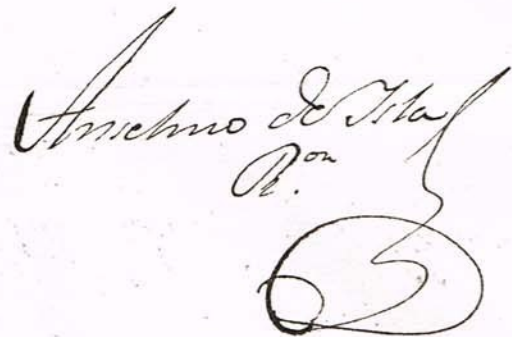 Anselmo de Isla
R.on